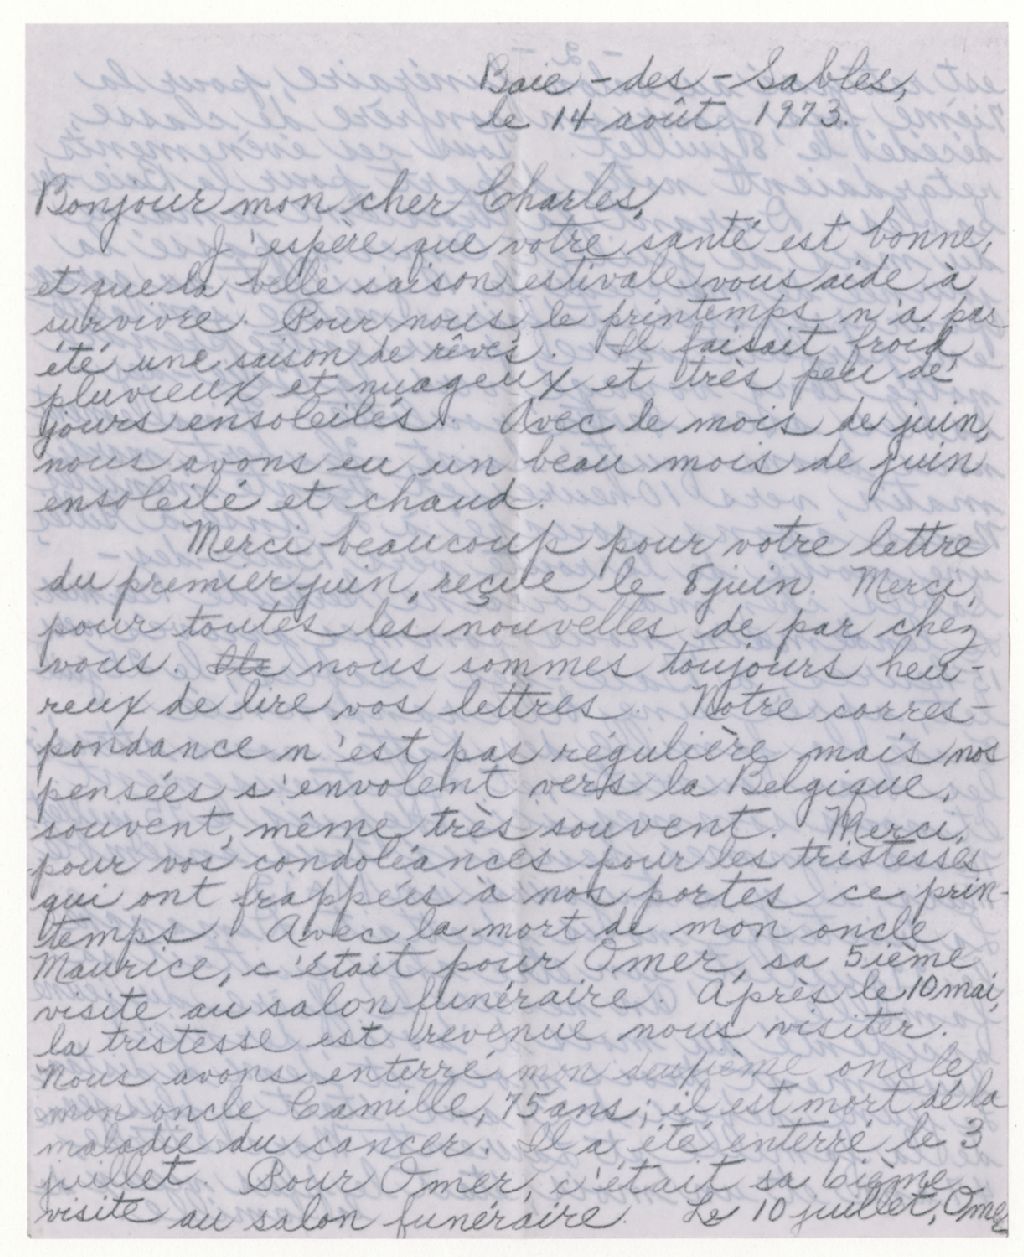 Baie-des-Sables,
le 14 août 1973.
Bonjour mon cher Charles,
J'espère que votre santé est bonne,
et que la belle saison estivale vous aide à
survivre. Pour nous le printemps n'a pas
été une saison de rêves. Il faisait froid
pluvieux et nuageux et très peu de
jours ensoleilés. Avec le mois de juin,
nous avons eu un beau mois de juin
ensoleilé et chaud.
Merci beaucoup pour votre lettre
du premier juin, reçue le 8 juin. Merci,
pour toutes les nouvelles de par chez
vous. nous sommes toujours heu-
reux de lire vos lettres. Notre corres-
pondance n'est pas régulière mais nos
pensées s'envolent vers la Belgique,
souvent, même très souvent. Merci,
pour vos condoléances pour les tristesses
qui ont frappées à nos portes ce prin-
temps. Avec la mort de mon oncle
Maurice, c'était pour Omer, sa 5ième
visite au salon funéraire. Après le 10 mai,
la tristesse est revenue nous visiter.
Nous avons enterré mon oncle
mon oncle Camille, 75 ans; il est mort de la
maladie du cancer. Il a été enterré le 3
juillet. Pour Omer, c'était sa 6ième
visite au salon funéraire. Le 10 juillet, Omer